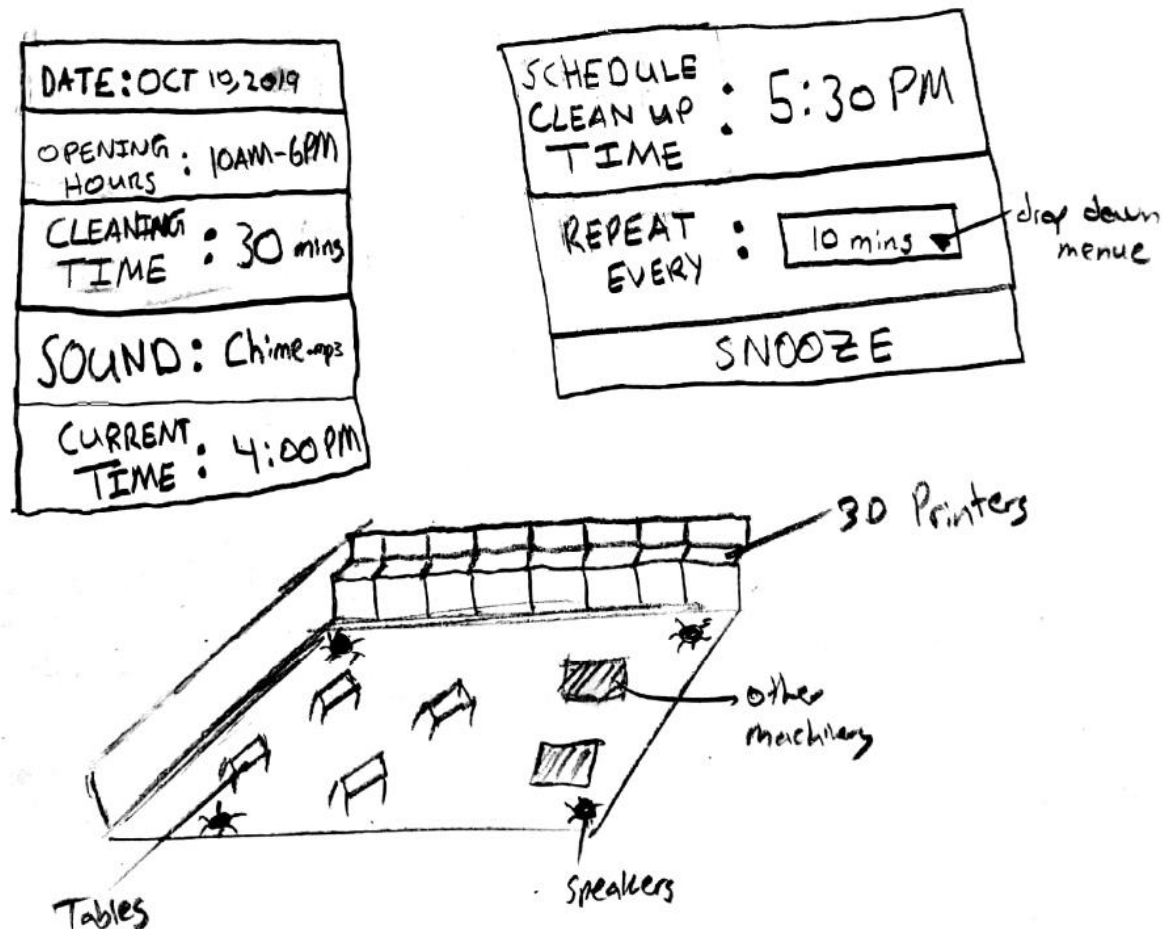 DATE: OCT 10, 2019
OPENING HOURS : 10AM-6PM
CLEANING TIME : 30 mins
SOUND: Chime.mp3
CURRENT TIME : 4:00 PM
SCHEDULE CLEAN UP TIME : 5:30 PM
REPEAT EVERY : 10 mins
drop down
menue
SNOOZE
3D Printers
other
machinery
Speakers
Tables